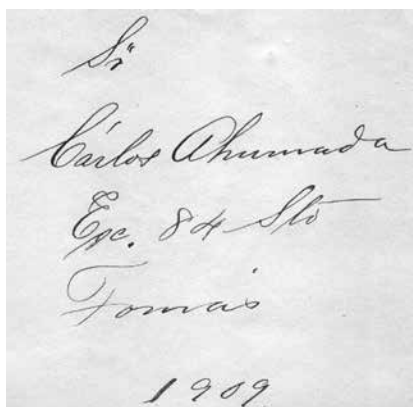 Sr
Cárlos Ahumada
Esc. 84 Sto
Tomás
1909